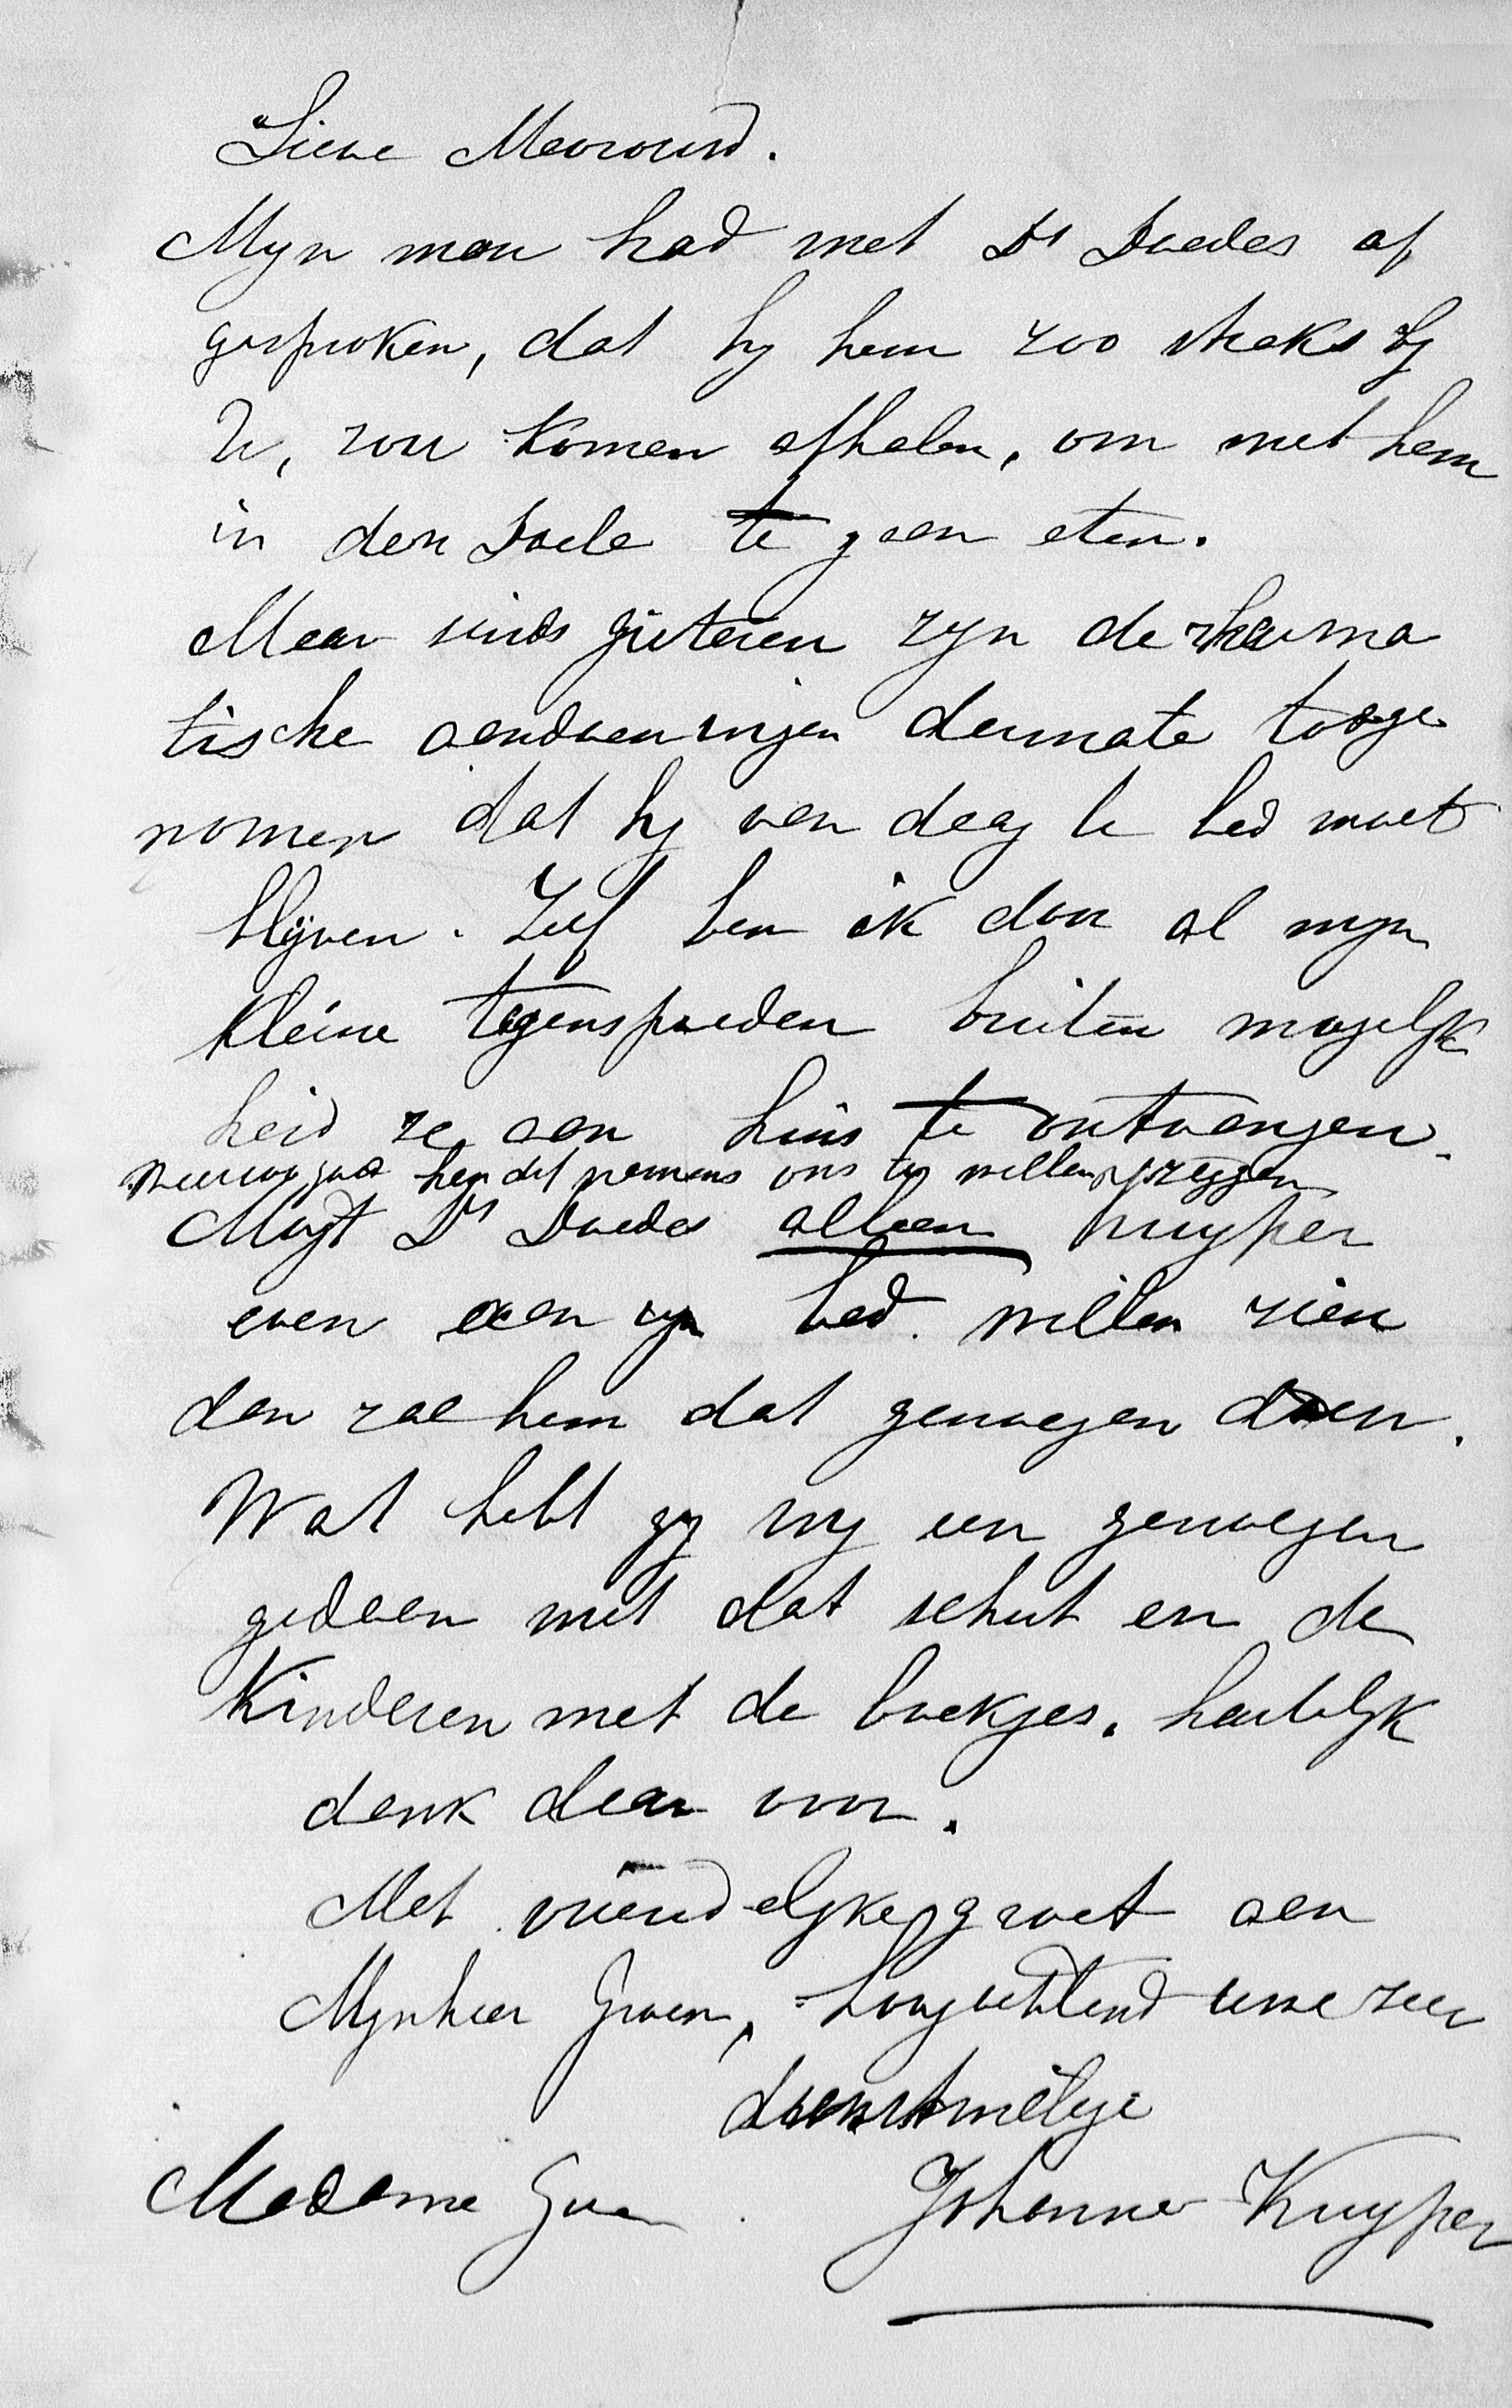 Lieve Mevrouw.
Myn man had met Ds Doedes af
gesproken, dat hy hem zoo straks by
U, zou komen afhalen, om met hem
in den Doele te gaan eten.
Maar sinds gisteren zyn de rheuma
tische aandoeningen dermate toege
nomen dat hy van daag te bed moet
blyven. Zelf ben ik door al myn
kleine tegenspoeden buiten mogelyk
heid ze aan huis te ontvangen.
Wees zoo goed hen dit namens ons te willen zeggen
Mogt Ds Doedes alleen Kuyper
even aan zyn bed willen zien
dan zal hem dat genoegen doen.
Wat hebt gy my een genoegen
gedaan met dat schut en de
Kinderen met de boekjes. hartelyk
dank daar voor.
Met vriendelyke groet aan
Mynheer Groen, hoogachtend uwe zeer
dienstwillige
Madame Groen Johanna Kuyper